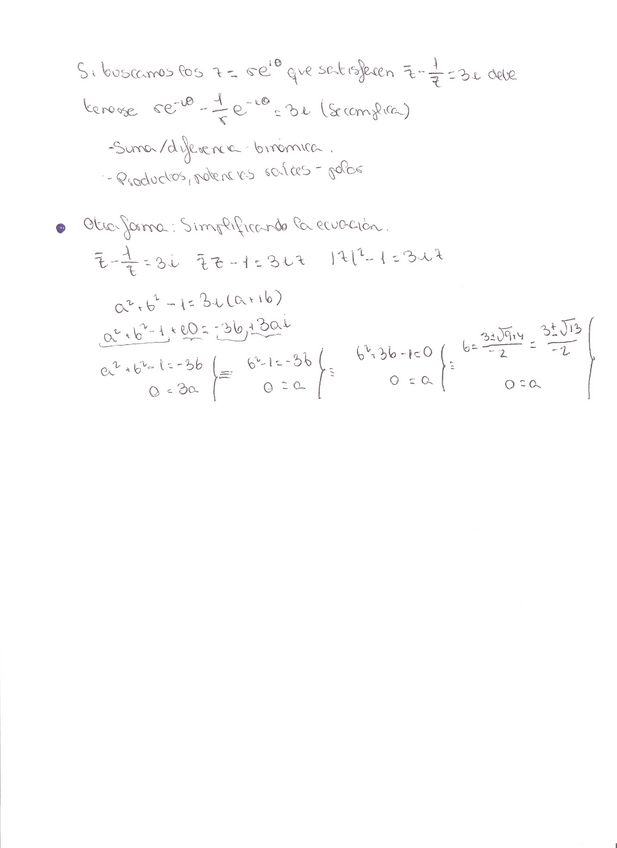 Si buscamos los z = re^{iθ} que satisfacen z̄ - 1/z = 3i debe
tenerse re^{-iθ} - 1/r e^{-iθ} = 3i (Se complica)
- Suma/diferencia - binómica.
- Productos, potencias raíces - polar
• Otra forma: Simplificando la ecuación.
z̄ - 1/z = 3i z̄z - 1 = 3iz |z|² - 1 = 3iz
a² + b² - 1 = 3i(a + ib)
a² + b² - 1 + i0 = -3b + 3ai
a² + b² - 1 = -3b } = b² - 1 = -3b } = b² + 3b - 1 = 0 } = b = 3±√9+4 / -2 = 3±√13 / -2 }
0 = 3a 0 = a 0 = a 0 = a